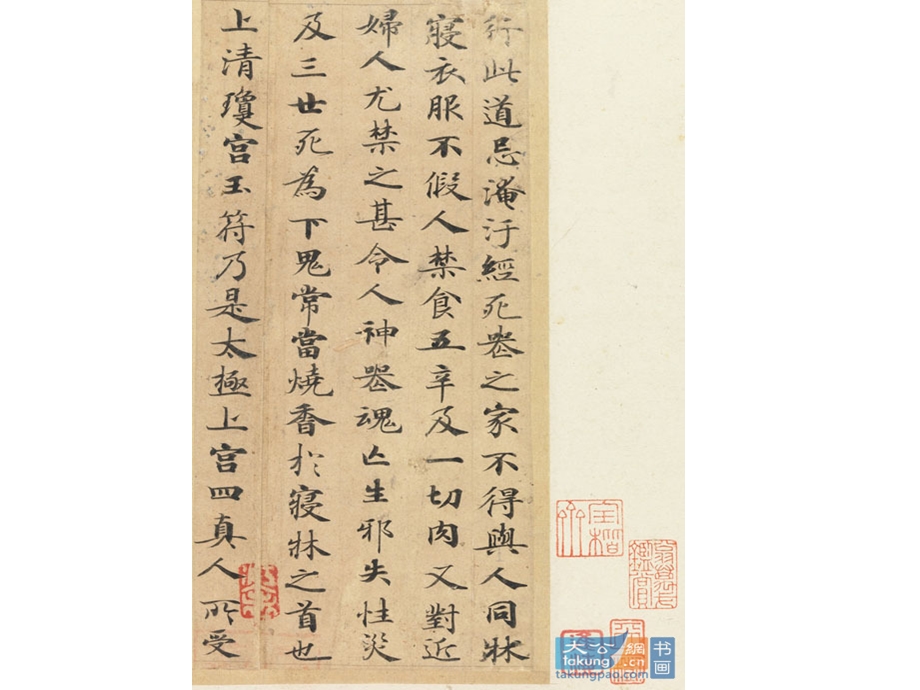 行此道忌淹汙經死喪之家不得與人同牀
寢衣服不假人禁食五辛及一切肉又對近
婦人尤禁之甚令人神喪魂亡生邪失性災
及三世死為下鬼常當燒香於寢牀之首也
上清瓊宮玉符乃是太極上宮四真人所受
大公網 书画
takung.cn
takungpao.com